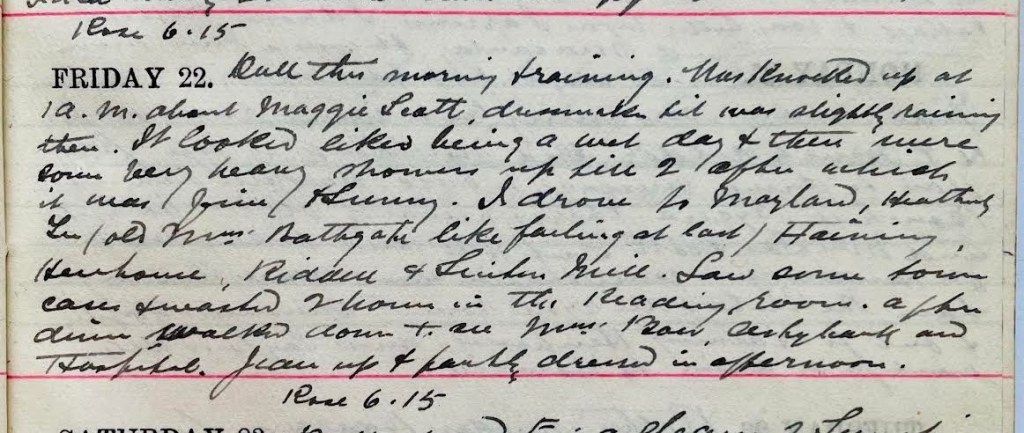 Rose 6.15
FRIDAY 22. Dull this morning & raining. Was Knocked up at
1 a.m. about Maggie Scott, dressmaker it was slightly raining
then. It looked like being a wet day & there were
some very heavy showers up till 2 after which
it was fine & sunny. I drove to Maxland, Heathery
Lee (old Mrs. Bathgate like failing at last) Haining,
Newhouse, Riddell & Linton Mill. Saw some town
cases & wasted 2 hours in the Reading room. After
dinner walked down to see Mrs. Bow, Ashybank and
Hospital. Jean up & partly dressed in afternoon.
Rose 6.15